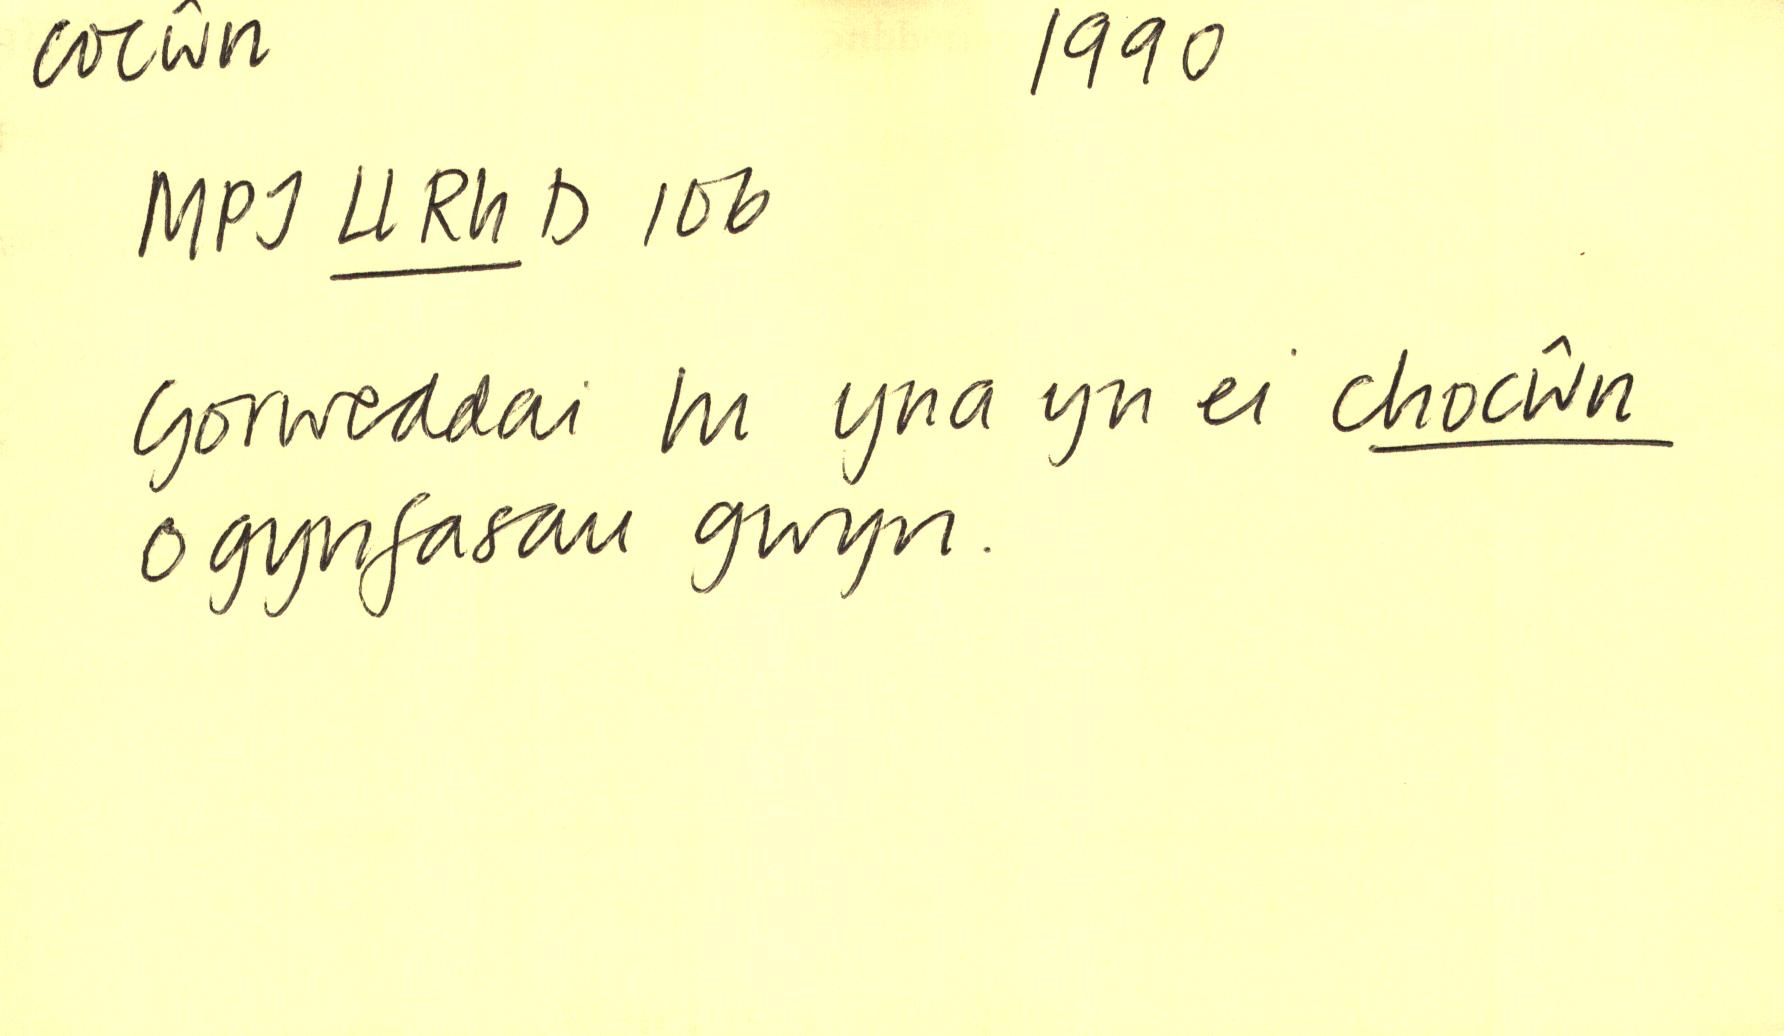 cocŵn 1990
MPJ LlRh D 106
Gorweddai hi yna yn ei chocŵn
o gynfasau gwyn.